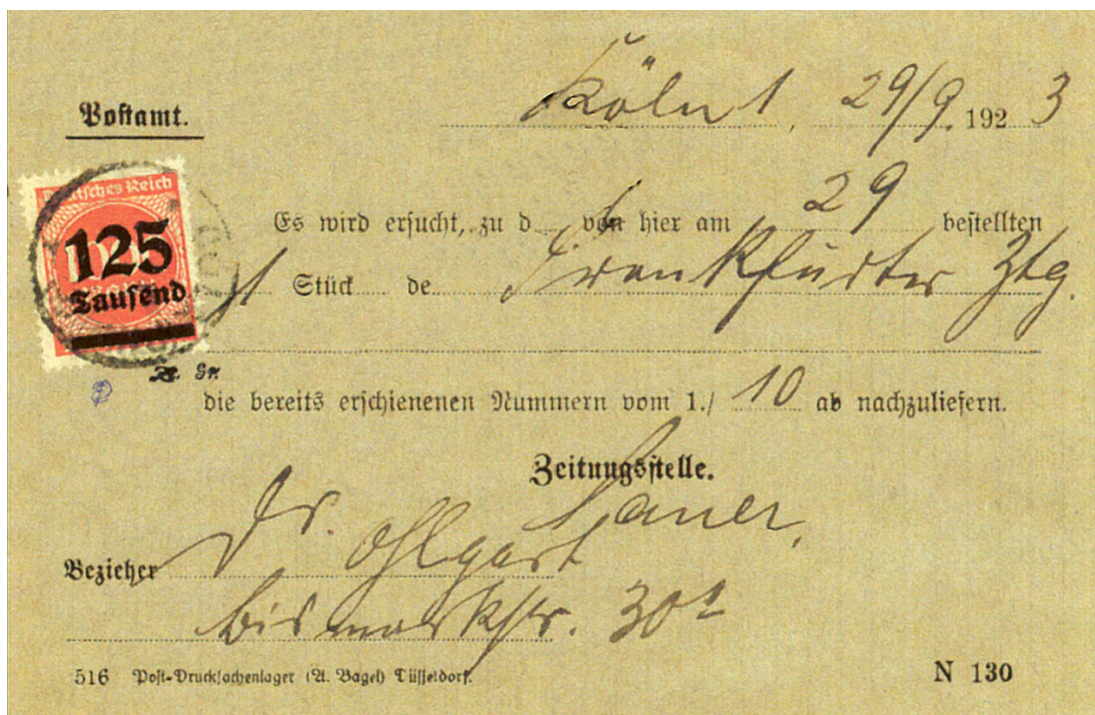 Köln 1, 29/9. 1923
Postamt.
Deutsches Reich
125
Tausend
Es wird ersucht, zu d von hier am 29 bestellten
1 Stück de Frankfurter Ztg.
die bereits erschienenen Nummern vom 1./10 ab nachzuliefern.
Zeitungsstelle.
Bezieher Dr. Ohlgart
Bismarkstr. 30
516 Post-Drucksachenlager (A. Bagel) Düsseldorf.
N 130